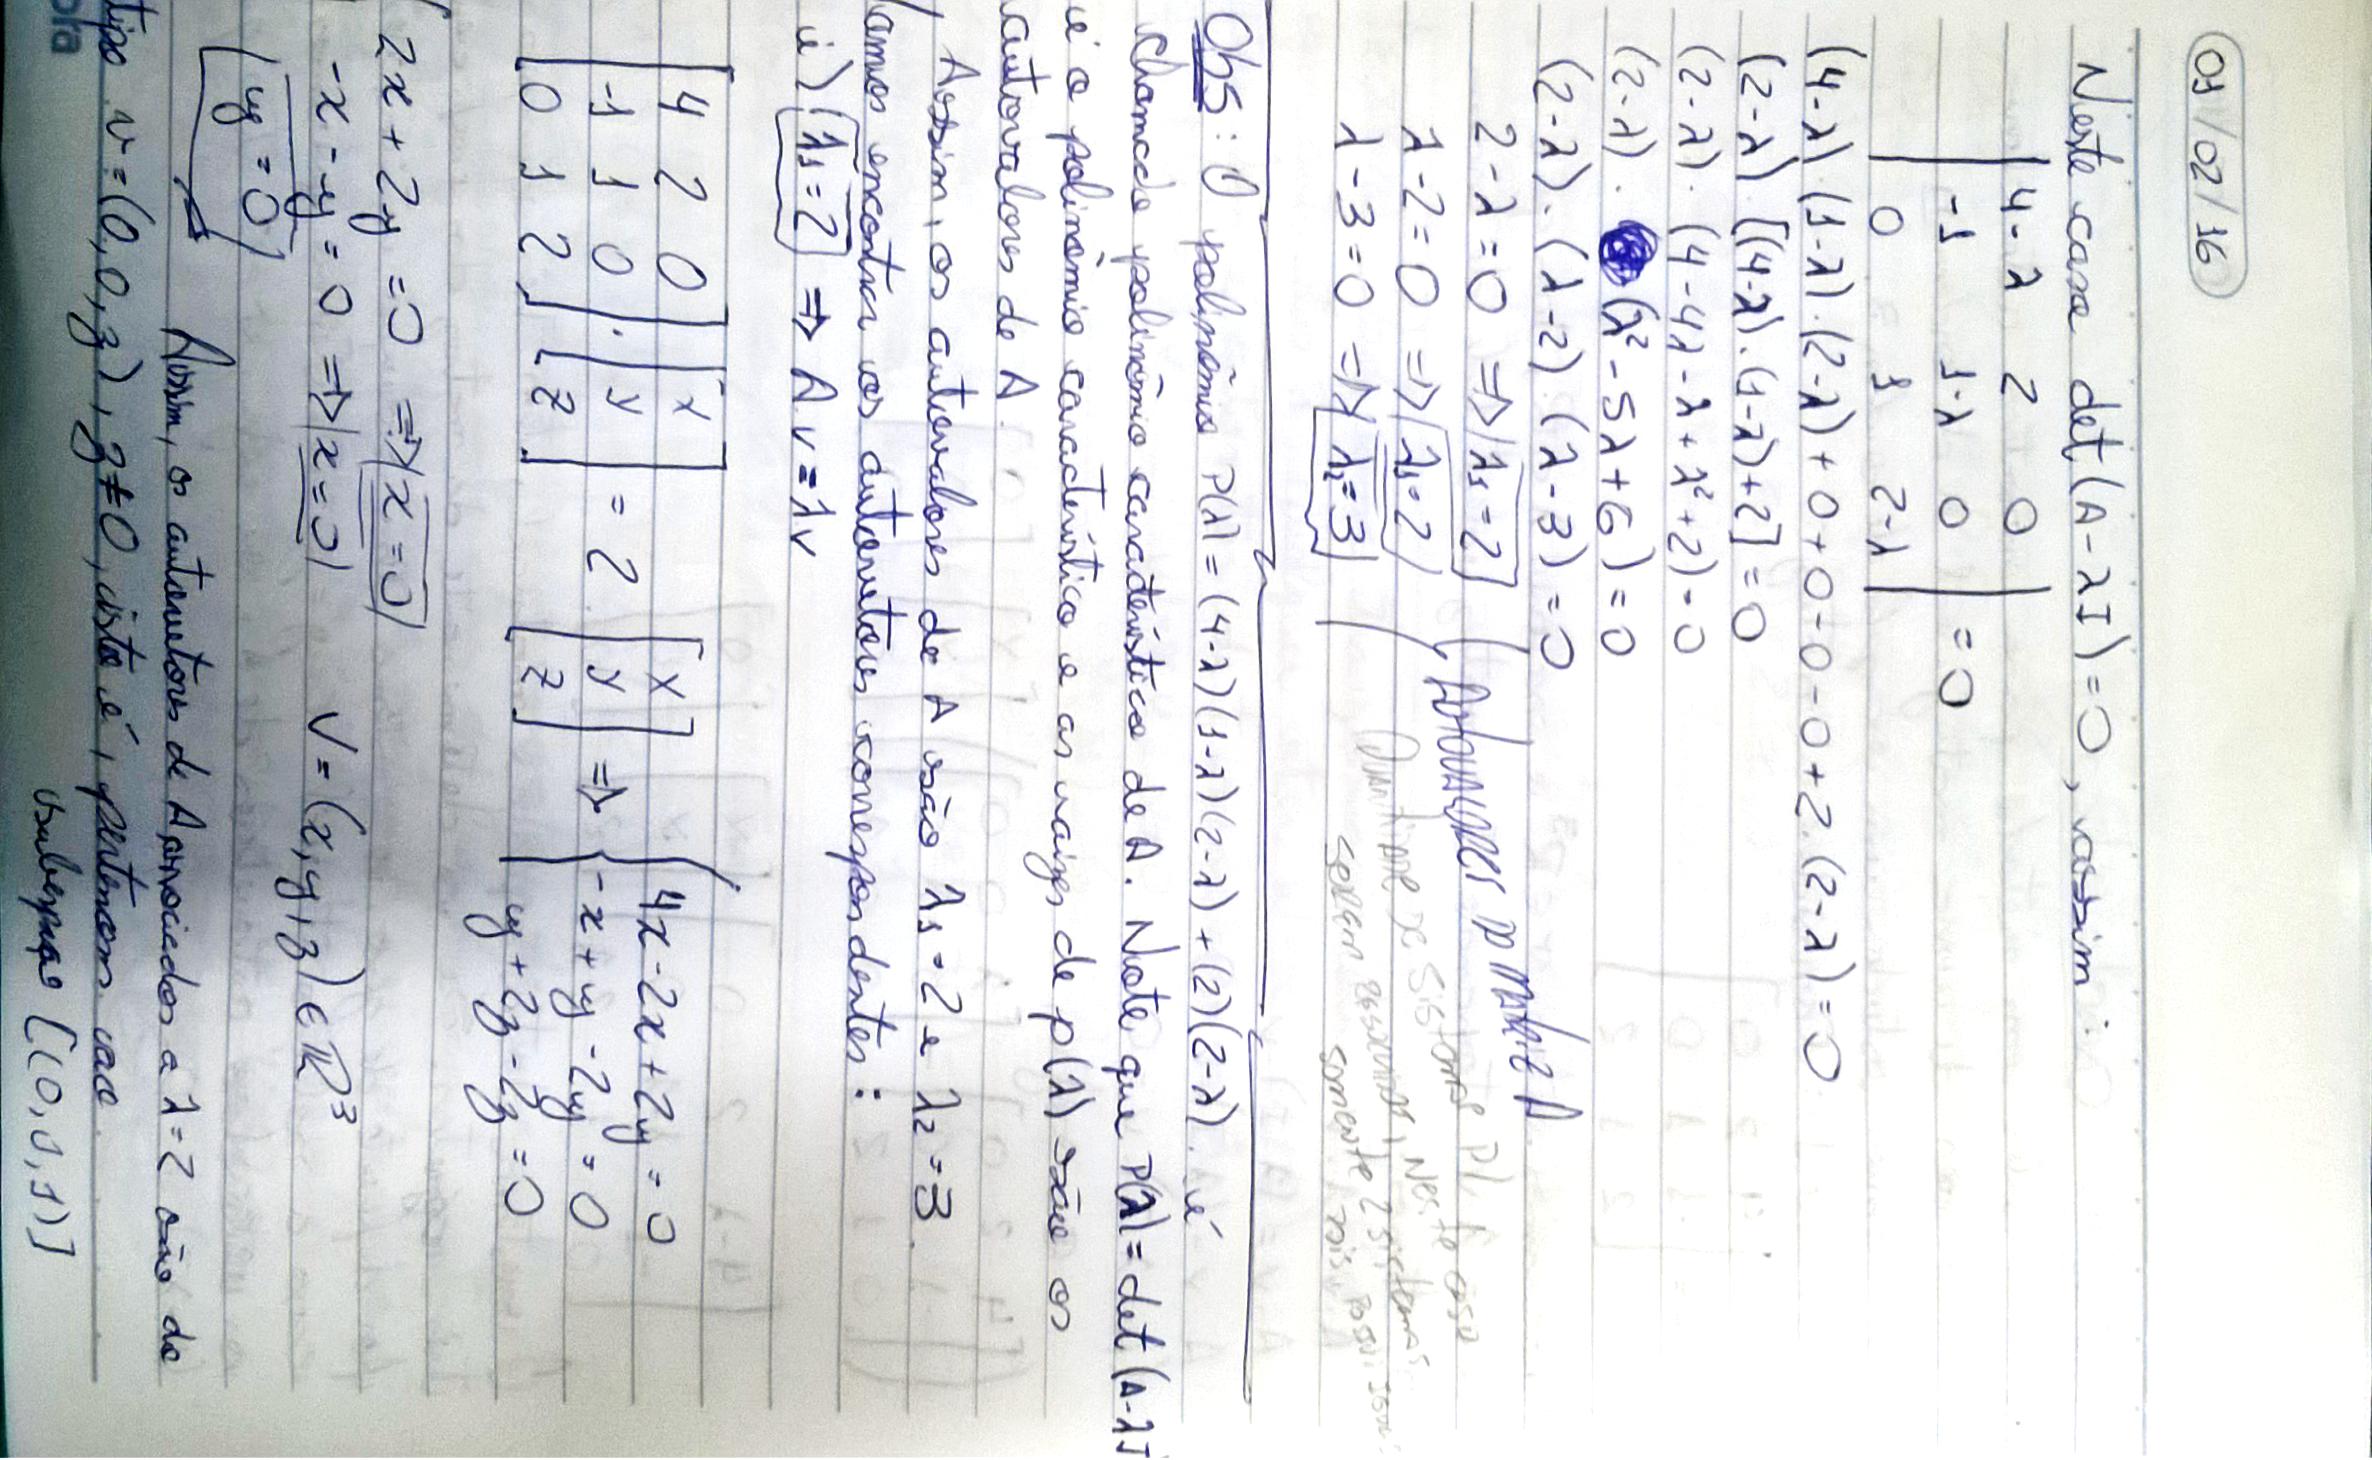 01/02/16
Neste caso det(A-λI)=0, assim:
| 4-λ 2 0 |
| -1 1-λ 0 | = 0
| 0 1 2-λ |
(4-λ).(1-λ).(2-λ)+0+0-0-0+2.(2-λ)=0
(2-λ).[(4-λ).(1-λ)+2]=0
(2-λ).(4-4λ-λ+λ²+2)=0
(2-λ).(λ²-5λ+6)=0
(2-λ).(λ-2).(λ-3)=0
2-λ=0 => λ1=2
λ-2=0 => λ1=2
λ-3=0 => λ2=3
AUTOVALORES DA MATRIZ A
QUANTIDADE DE SISTEMAS P/
SEREM RESOLVIDOS, NESTE CASO
SOMENTE 2 SISTEMAS
POIS POSSUI
Obs: O polinômio P(λ)=(4-λ)(1-λ)(2-λ)+(2)(2-λ). é
chamado polinômio característico de A. Note que P(λ)=det(A-λI
é o polinômio característico e as raizes de p(λ) são os
autovalores de A.
Assim, os autovalores de A são λ1=2 e λ2=3.
Vamos encontrar os autovetores correspondentes:
i) λ1=2 => A.v=λv
[4 2 0] [x] [x] { 4x-2x+2y=0
[-1 1 0] . [y] = 2 [y] => { -x+y-2y=0
[0 1 2] [z] [z] { y+2z-2z=0
{ 2x+2y=0 => x=0
-x-y=0 => x=0 V=(x,y,z)∈ℝ³
y=0
Assim, os autovetores de A associados a λ=2 são do
tipo v=(0,0,z), z≠0, isto é, pertencem ao
subespaço [(0,0,1)]
ora